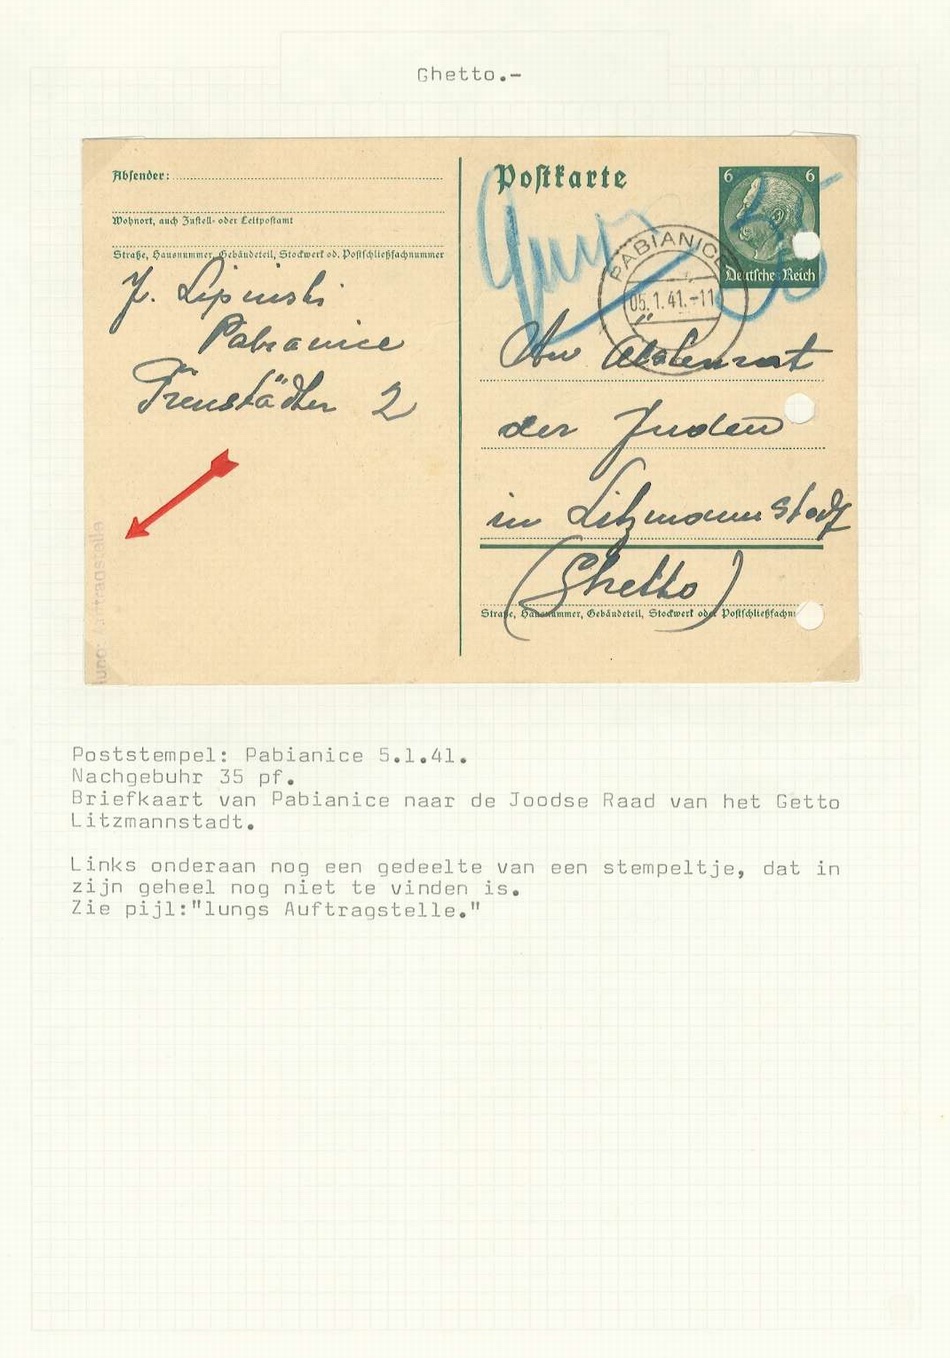 Ghetto.-
Absender:
Wohnort, auch Zustell- oder Leitpostamt
Straße, Hausnummer, Gebäudeteil, Stockwerk od. Postschließfachnummer
J. Lipinski
Pabianice
Freustädter 2
lung: Auftragstelle
Postkarte
6 6
Deutsches Reich
PABIANICE
05.1.41.-11
An Ältestenrat
der Juden
in Litzmannstadt
(Ghetto)
Straße, Hausnummer, Gebäudeteil, Stockwerk oder Postschließfachn
Poststempel: Pabianice 5.1.41.
Nachgebuhr 35 pf.
Briefkaart van Pabianice naar de Joodse Raad van het Getto
Litzmannstadt.
Links onderaan nog een gedeelte van een stempeltje, dat in
zijn geheel nog niet te vinden is.
Zie pijl:"lungs Auftragstelle."